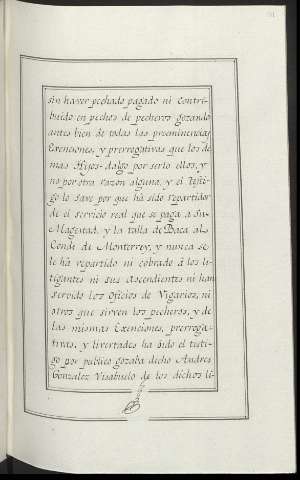 sin haver pechado pagado ni Contri-
buido en pechos de pecheros gozando
antes bien de todas las preeminencias
Exenciones, y prerrogativas que los de
mas Hijos-dalgo por serlo ellos, y
no por otra razon alguna, y el Testi-
go lo save por que há sido repartidor
de el servicio real que se paga a Su-
Magestad, y la talla de Baca al
Conde de Monterrey, y nunca se
le há repartido ni cobrado à los li-
tigantes ni sus Ascendientes ni han
servido los Oficios de Vigarios, ni
otros que sirven los pecheros, y de
las mismas Exenciones, prerroga-
tivas, y livertades ha oido el testi-
go por publico gozaba dicho Andres
Gonzalez Visabuelo de los dichos li-